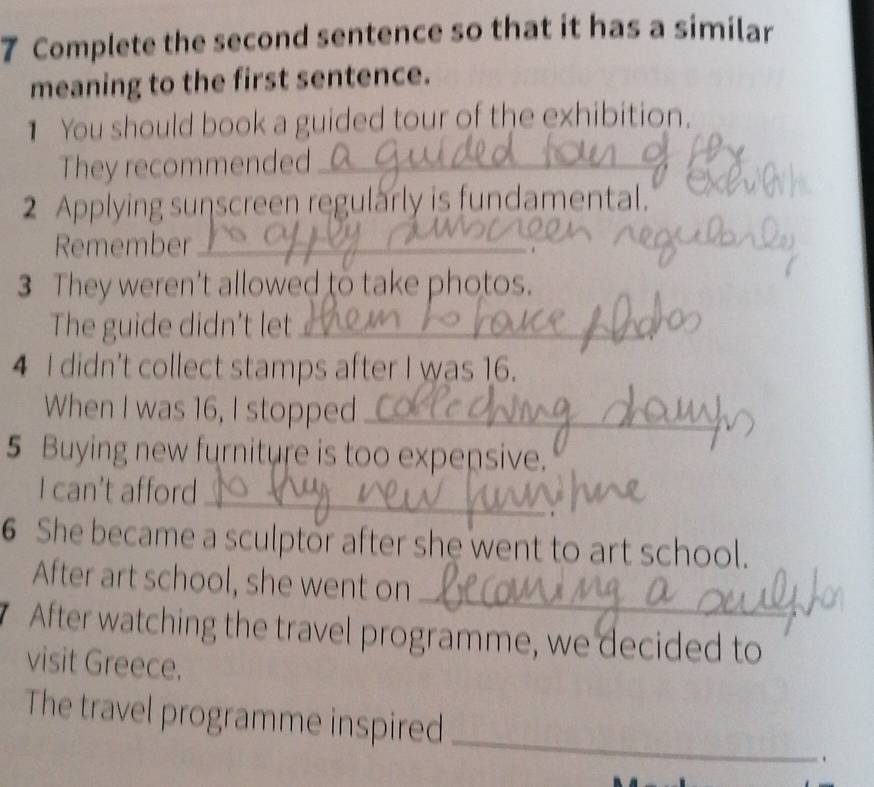 7 Complete the second sentence so that it has a similar
meaning to the first sentence.
1 You should book a guided tour of the exhibition.
They recommended a guided tour of
2 Applying sunscreen regularly is fundamental.
Remember to apply sunscreen regularly.
3 They weren't allowed to take photos.
The guide didn't let them to take photos
4 I didn't collect stamps after I was 16.
When I was 16, I stopped collecting stamps
5 Buying new furniture is too expensive.
I can't afford to buy new furniture.
6 She became a sculptor after she went to art school.
After art school, she went on becoming a sculptor
7 After watching the travel programme, we decided to
visit Greece.
The travel programme inspired .